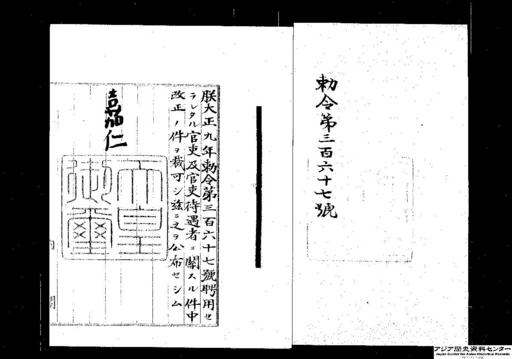 勅令第三百六十七號
朕大正九年勅令第三百六十七號聘用セ
ラレタル官吏及官吏待遇者ニ關スル件中
改正ノ件ヲ裁可シ茲ニ之ヲ公布セシム
嘉仁
天皇御璽
アジア歴史資料センター
Japan Center for Asian Historical Records